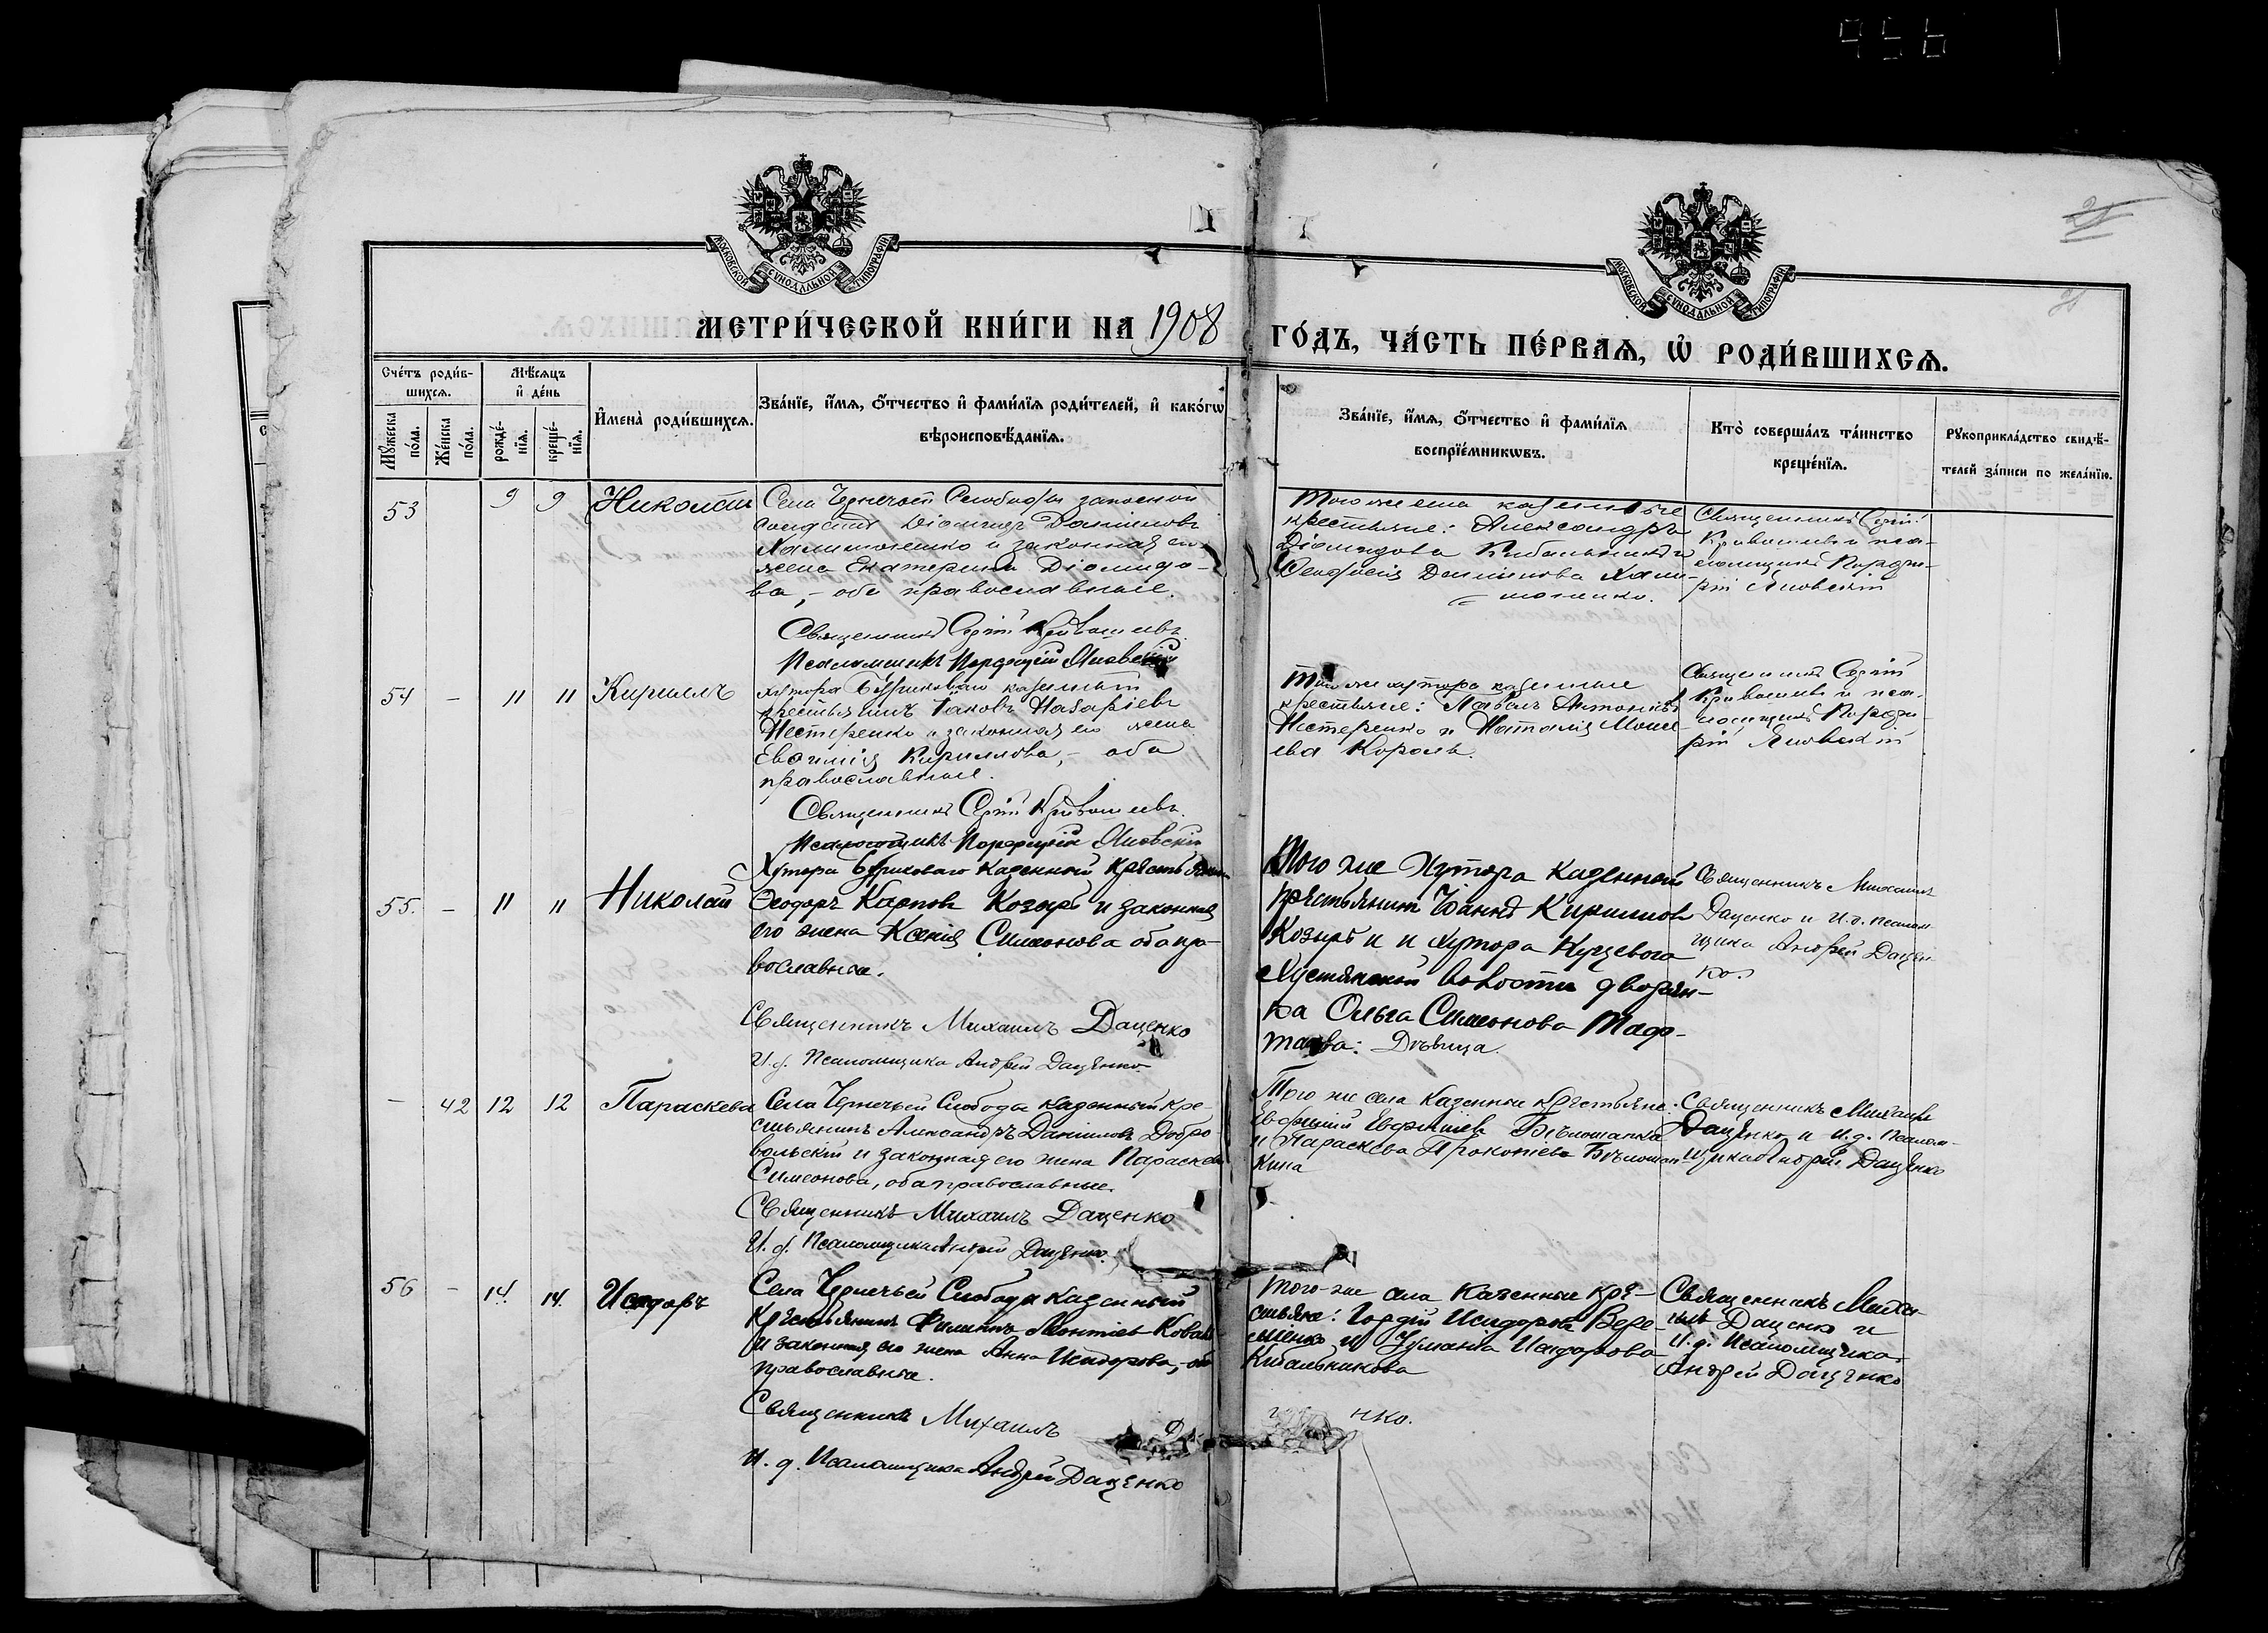 956
МОСКОВСКОЙ СѴНОДАЛЬНОЙ ТИПОГРАФІИ
МОСКОВСКОЙ СѴНОДАЛЬНОЙ ТИПОГРАФІИ
МЕТРИ́ЧЕСКОЙ КНИ́ГИ НА 1908 ГО́ДЪ, ЧА́СТЬ ПЕ́РВАѦ, Ѡ҆ РОДИ́ВШИХСѦ.
Сче́тъ роди́в-
шихсѧ.
Мꙋ́жеска по́ла.
Же́нска по́ла.
Мѣ́сяцъ
и҆ де́нь
рожде́-
нїѧ.
креще́-
нїѧ.
И҆мена̀ роди́вшихсѧ.
Зва́нїе, и҆́мѧ, ѻ҆́тчество и҆ фами́лїѧ роди́телей, и҆ како́гѡ
вѣроисповѣ́данїѧ.
Зва́нїе, и҆́мѧ, ѻ҆́тчество и҆ фами́лїѧ
воспрїе́мникѡвъ.
Кто̀ соверша́лъ та́инство
креще́нїѧ.
Рꙋкоприкла́дство свидѣ́-
телей за́писи по жела́нїю.
53
9
9
Николай
Села Чернечей Слободы запасной
солдатъ Діомидъ Даниловъ
Халимоненко и законная его
жена Екатерина Діомидо-
ва, - оба православные.
Священникъ Сергій Кривошеевъ
Псаломщикъ Порфирій Яновскій
Того же села казенные
крестьяне: Александръ
Діомидовъ Кибальникъ и
Феодосія Данилова Хали-
моненко.
Священникъ Сергій
Кривошеевъ и пса-
ломщикъ Порфи-
рій Яновскій
54
-
11
11
Кириллъ
хутора Буриковаго казенный
крестьянинъ Іаковъ Назаріевъ
Нестеренко и законная его жена
Евфимія Кириллова, - оба
православные.
Священникъ Сергій Кривошеевъ
Псаломщикъ Порфирій Яновскій
Того же хутора казенные
крестьяне: Павелъ Антоновъ
Нестеренко и Наталія Моисе-
ева Король.
Священникъ Сергій
Кривошеевъ и пса-
ломщикъ Порфи-
рій Яновскій
55.
-
11
11
Николай
Хутора Бурикова̄го казенный крестьянинъ
Ѳеодоръ Карповъ Козырь и законная
его жена Ксенія Симеонова оба пра-
вославные.
Священникъ Михаилъ Даценко
И.д. Псаломщика Андрей Даценко
Того же Хутора казенный
крестьянинъ Іоаннъ Кирилловъ
Козырь и и хутора
волости дворян-
ка Ольга Симеонова
Дѣвица.
Священникъ Михаилъ
Даценко и И.д. псалом-
щика Андрей Дацен-
ко.
-
42
12
12
Параскева
Села Чернечьей Слободы казенный кре-
стьянинъ Александръ Даніиловъ Добро-
вольскій и законная его жена Параскева
Симеонова, оба православные.
Священникъ Михаилъ Даценко
И.д. Псаломщика Андрей Даценко
Того же села Казенные крестьяне:
Евфимій Евфиміевъ
и Параскева Прокопіева
кина
Священникъ Михаилъ
Даценко и И.д. Псалом-
щика Андрей Даценко
56
-
14
14.
Исидоръ
Села Чернечьей Слободы казенный
Крестьянинъ Филиппъ Леонтіев Коваль
и законная его жена Анна Исидорова, оба
православные.
Священникъ Михаилъ Да нко.
И.д. Псаломщика Андрей Даценко
Того-же села Казенные кре-
стьяне: Гордій Исидоровъ
и Іуліанія Исидорова
Кибальникова
Священникъ Миха-
илъ Даценко и
И.д. Псаломщика
Андрей Даценко